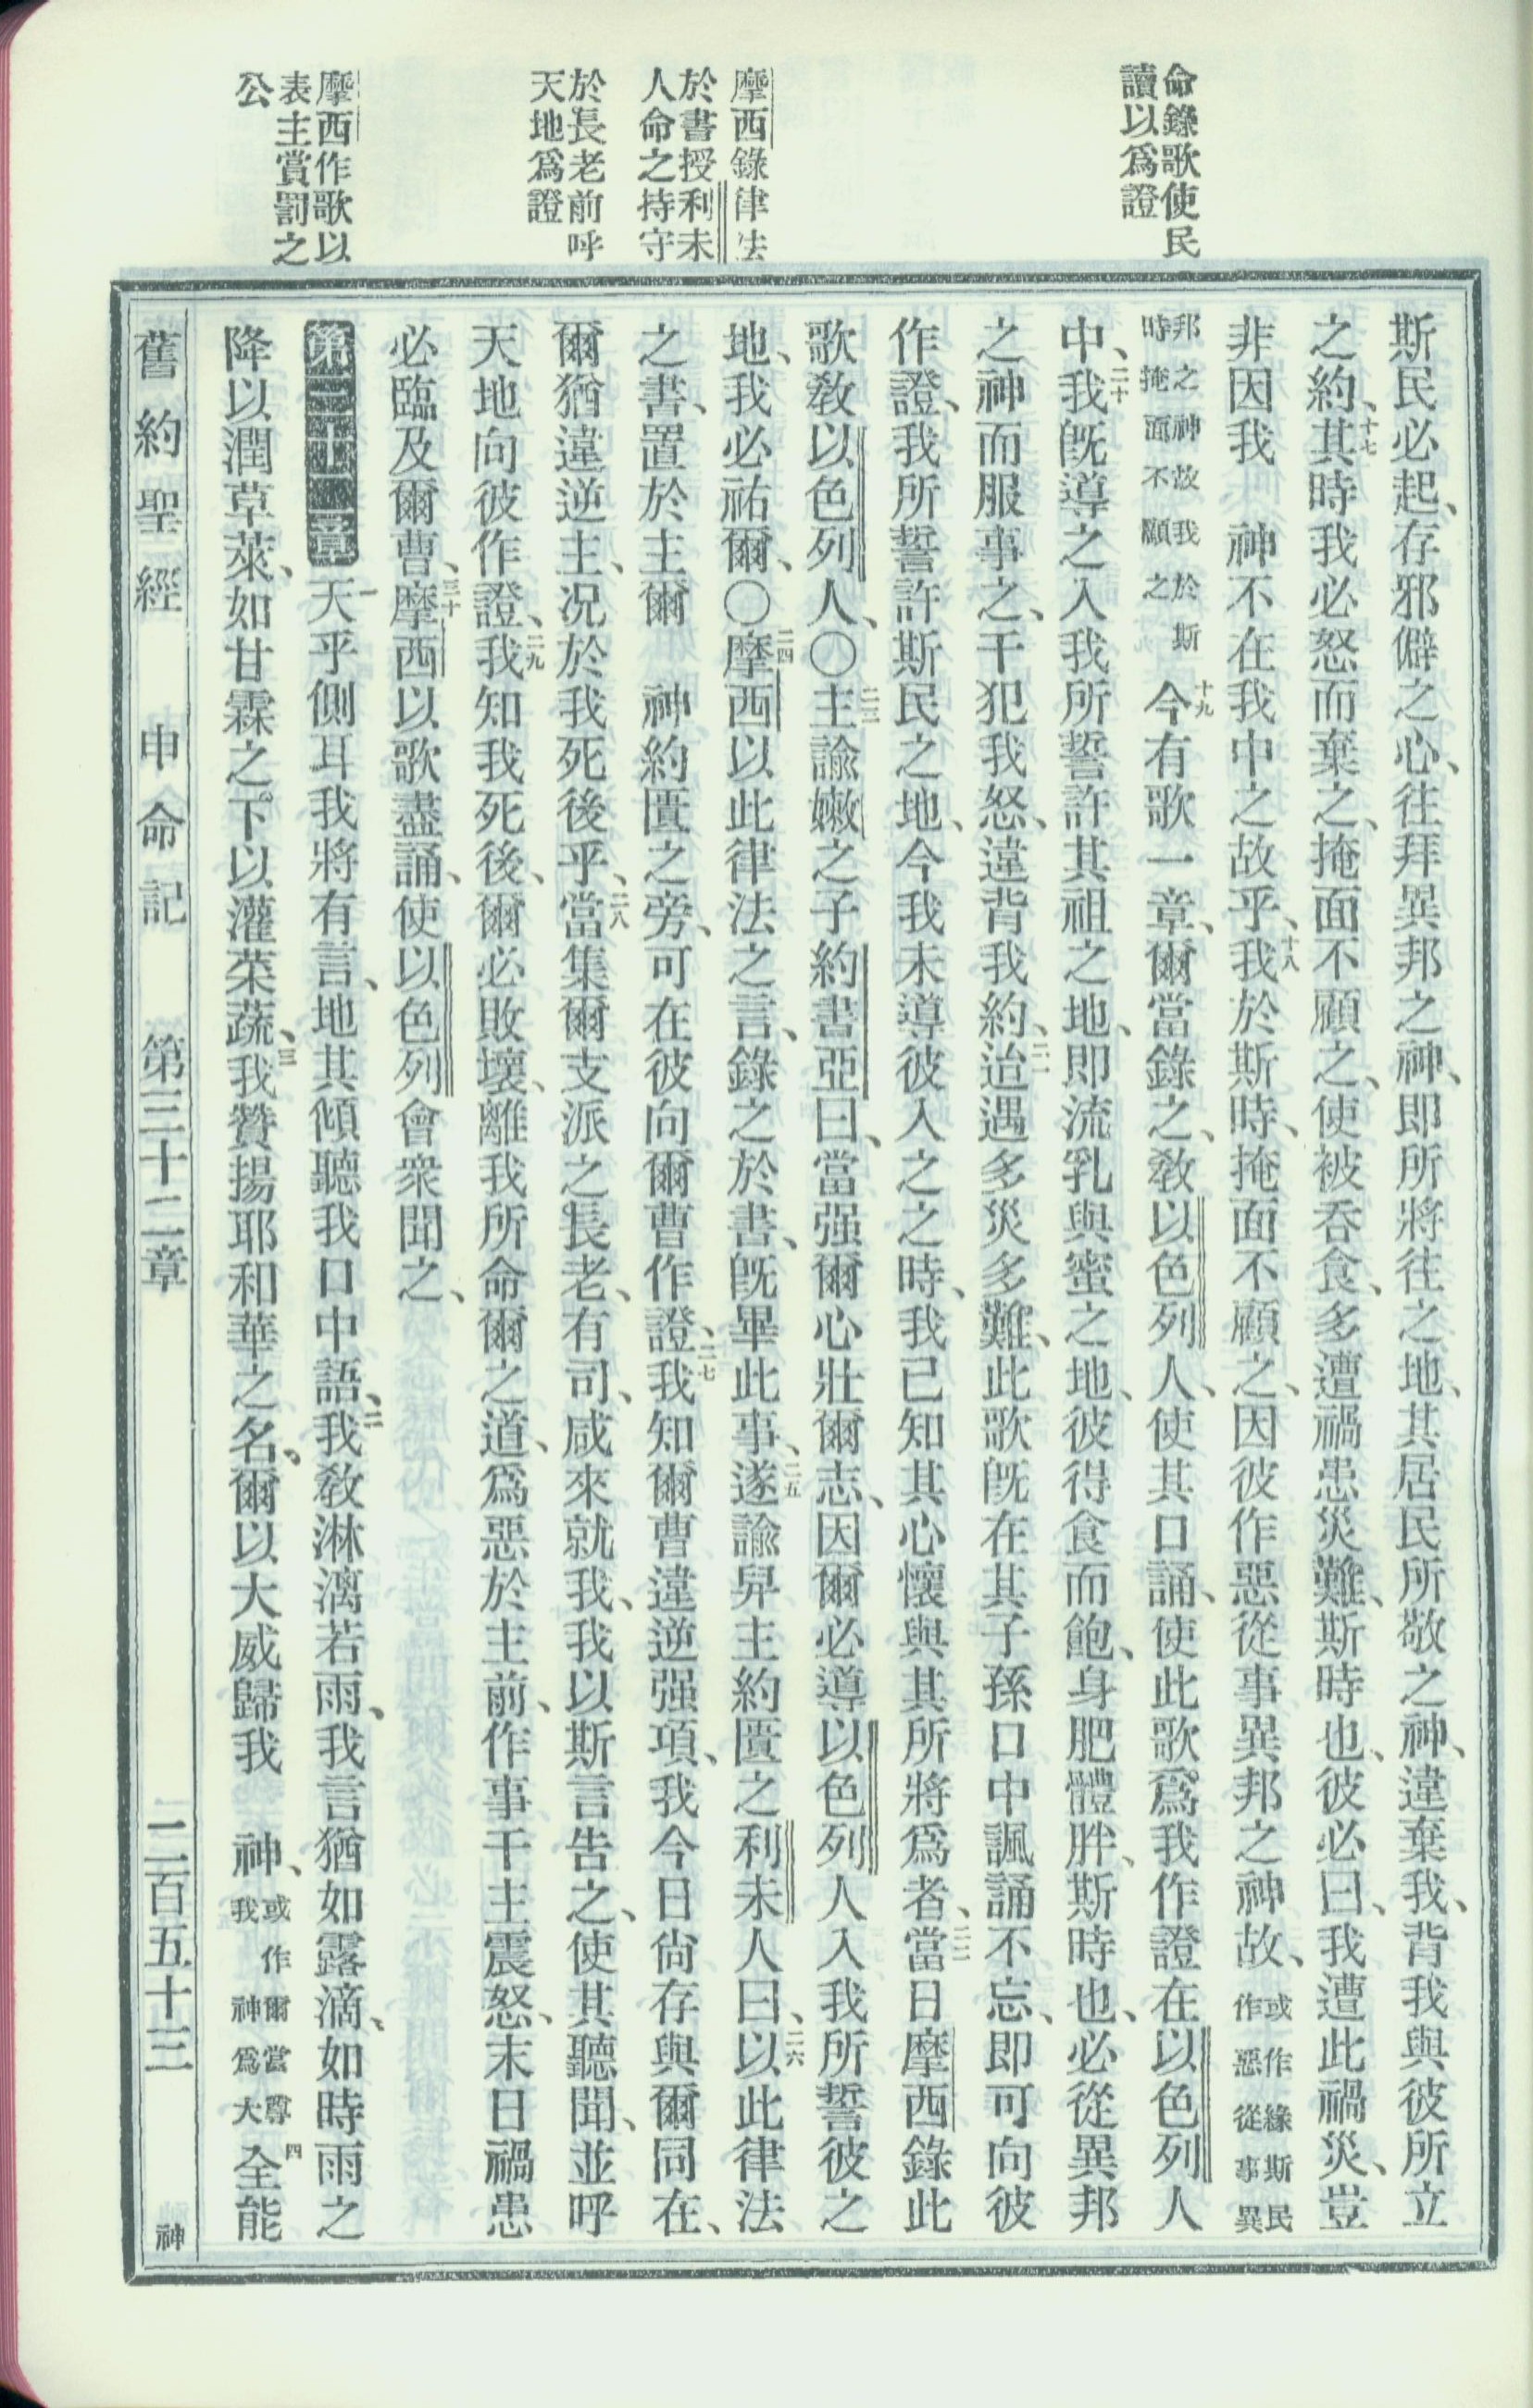 命錄歌使民
讀以爲證
摩西錄律法
於書授利未
人命之持守
於長老前呼
天地爲證
摩西作歌以
表主賞罰之
公
斯民必起、存邪僻之心、往拜異邦之神、即所將往之地、其居民所敬之神、違棄我、背我與彼所立
之約、十七其時我必怒而棄之、掩面不顧之、使被吞食、多遭禍患災難、斯時也、彼必曰、我遭此禍災、豈
非因我　神不在我中之故乎、十八我於斯時、掩面不顧之、因彼作惡從事異邦之神故、或作緣斯民作惡從事異
邦之神故我於斯時掩面不顧之十九今有歌一章、爾當錄之、教以色列人、使其口誦、使此歌爲我作證在以色列人
中、二十我旣導之入我所誓許其祖之地、即流乳與蜜之地、彼得食而飽、身肥體胖、斯時也、必從異邦
之神而服事之、干犯我怒、違背我約、二一迨遇多災多難、此歌旣在其子孫口中諷誦不忘、即可向彼
作證、我所誓許斯民之地、今我未導彼入之之時、我已知其心懷與其所將爲者、二二當日摩西錄此
歌教以色列人、〇二三主諭嫩之子約書亞曰、當强爾心壯爾志、因爾必導以色列人入我所誓彼之
地、我必祐爾、〇二四摩西以此律法之言、錄之於書、旣畢此事、二五遂諭舁主約匱之利未人曰、二六以此律法
之書、置於主爾　神約匱之旁、可在彼向爾曹作證、二七我知爾曹違逆强項、我今日尙存與爾同在、
爾猶違逆主、况於我死後乎、二八當集爾支派之長老、有司、咸來就我、我以斯言告之、使其聽聞、並呼
天地向彼作證、二九我知我死後、爾必敗壞、離我所命爾之道、爲惡於主前、作事干主震怒、末日禍患
必臨及爾曹、三十摩西以歌盡誦、使以色列會衆聞之、
第三十二章 一天乎側耳我將有言、地其傾聽我口中語、二我教淋漓若雨、我言猶如露滴、如時雨之
降以潤草萊、如甘霖之下以灌菜蔬、三我贊揚耶和華之名、爾以大威歸我　神、或作爾當尊我神爲大四全能
舊約聖經　申命記　第三十二章　二百五十三　神